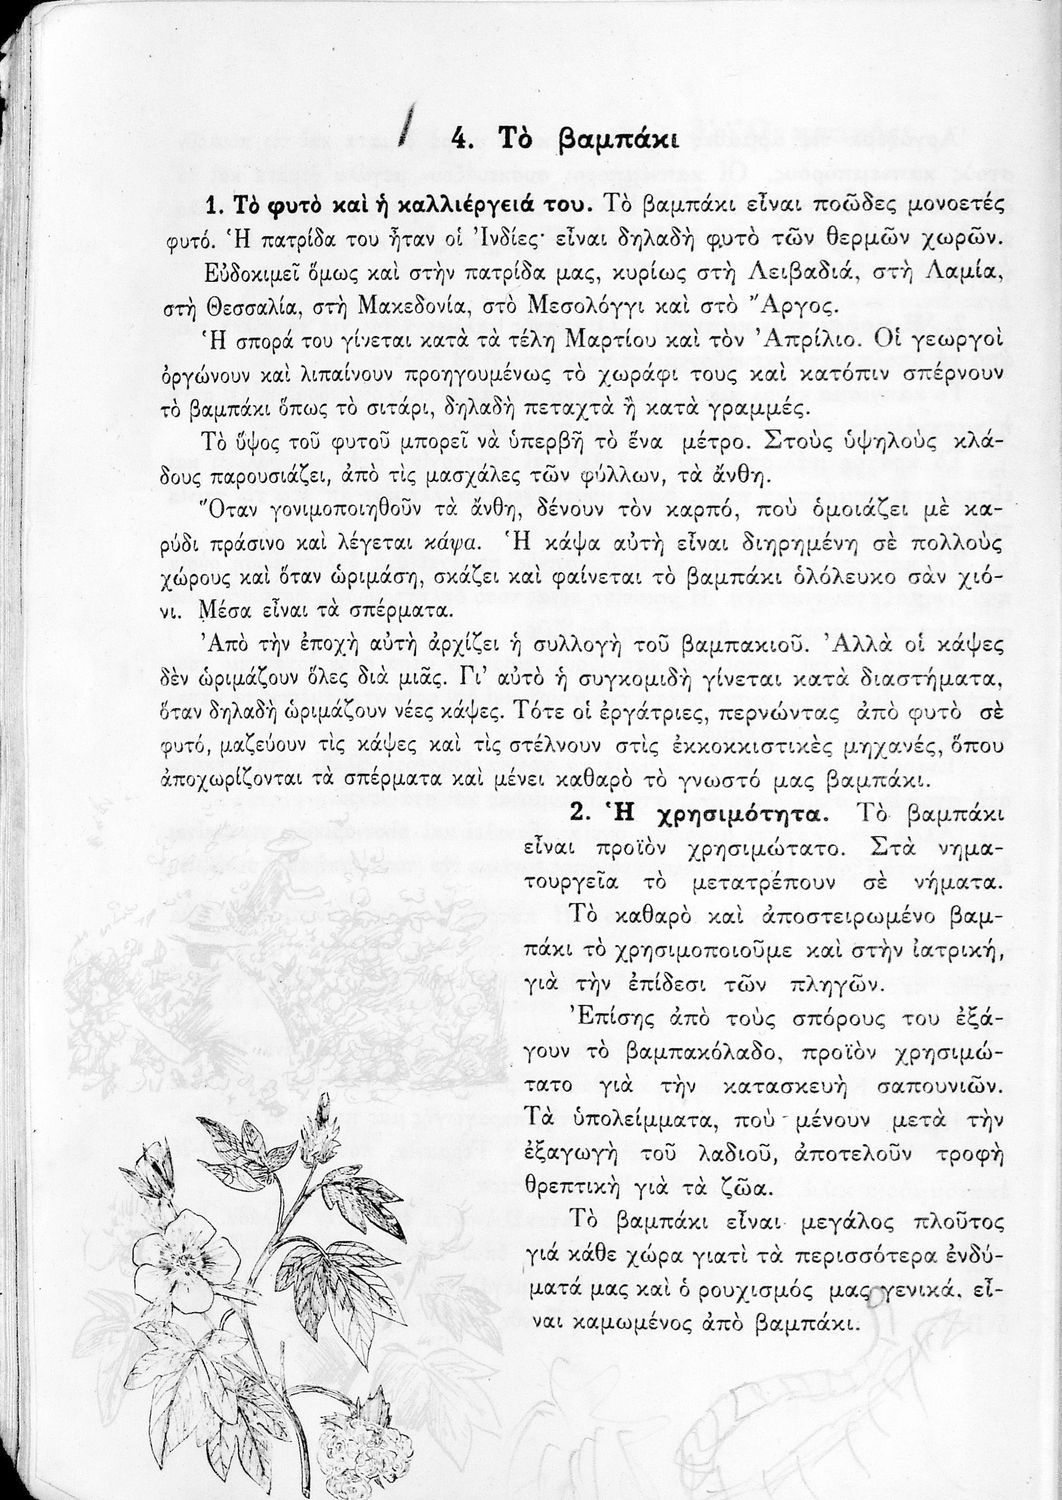 4. Τὸ βαμπάκι
1. Τὸ φυτὸ καὶ ἡ καλλιέργειά του. Τὸ βαμπάκι εἶναι ποῶδες μονοετές
φυτό. Ἡ πατρίδα του ἦταν οἱ Ἰνδίες· εἶναι δηλαδὴ φυτὸ τῶν θερμῶν χωρῶν.
Εὐδοκιμεῖ ὅμως καὶ στὴν πατρίδα μας, κυρίως στὴ Λειβαδιά, στὴ Λαμία,
στὴ Θεσσαλία, στὴ Μακεδονία, στὸ Μεσολόγγι καὶ στὸ Ἄργος.
Ἡ σπορά του γίνεται κατὰ τὰ τέλη Μαρτίου καὶ τὸν Ἀπρίλιο. Οἱ γεωργοὶ
ὀργώνουν καὶ λιπαίνουν προηγουμένως τὸ χωράφι τους καὶ κατόπιν σπέρνουν
τὸ βαμπάκι ὅπως τὸ σιτάρι, δηλαδὴ πεταχτὰ ἢ κατὰ γραμμές.
Τὸ ὕψος τοῦ φυτοῦ μπορεῖ νὰ ὑπερβῆ τὸ ἕνα μέτρο. Στοὺς ὑψηλοὺς κλά-
δους παρουσιάζει, ἀπὸ τὶς μασχάλες τῶν φύλλων, τὰ ἄνθη.
Ὅταν γονιμοποιηθοῦν τὰ ἄνθη, δένουν τὸν καρπό, ποὺ ὁμοιάζει μὲ κα-
ρύδι πράσινο καὶ λέγεται κάψα. Ἡ κάψα αὐτὴ εἶναι διηρημένη σὲ πολλοὺς
χώρους καὶ ὅταν ὡριμάση, σκάζει καὶ φαίνεται τὸ βαμπάκι ὁλόλευκο σὰν χιό-
νι. Μέσα εἶναι τὰ σπέρματα.
Ἀπὸ τὴν ἐποχὴ αὐτὴ ἀρχίζει ἡ συλλογὴ τοῦ βαμπακιοῦ. Ἀλλὰ οἱ κάψες
δὲν ὡριμάζουν ὅλες διὰ μιᾶς. Γι' αὐτὸ ἡ συγκομιδὴ γίνεται κατὰ διαστήματα,
ὅταν δηλαδὴ ὡριμάζουν νέες κάψες. Τότε οἱ ἐργάτριες, περνώντας ἀπὸ φυτὸ σὲ
φυτό, μαζεύουν τὶς κάψες καὶ τὶς στέλνουν στὶς ἐκκοκκιστικὲς μηχανές, ὅπου
ἀποχωρίζονται τὰ σπέρματα καὶ μένει καθαρὸ τὸ γνωστό μας βαμπάκι.
2. Ἡ χρησιμότητα. Τὸ βαμπάκι
εἶναι προϊὸν χρησιμώτατο. Στὰ νημα-
τουργεῖα τὸ μετατρέπουν σὲ νήματα.
Τὸ καθαρὸ καὶ ἀποστειρωμένο βαμ-
πάκι τὸ χρησιμοποιοῦμε καὶ στὴν ἰατρική,
γιὰ τὴν ἐπίδεσι τῶν πληγῶν.
Ἐπίσης ἀπὸ τοὺς σπόρους του ἐξά-
γουν τὸ βαμπακόλαδο, προϊὸν χρησιμώ-
τατο γιὰ τὴν κατασκευὴ σαπουνιῶν.
Τὰ ὑπολείμματα, ποὺ μένουν μετὰ τὴν
ἐξαγωγὴ τοῦ λαδιοῦ, ἀποτελοῦν τροφὴ
θρεπτικὴ γιὰ τὰ ζῶα.
Τὸ βαμπάκι εἶναι μεγάλος πλοῦτος
γιά κάθε χώρα γιατὶ τὰ περισσότερα ἐνδύ-
ματά μας καὶ ὁ ρουχισμός μας γενικά. εἶ-
ναι καμωμένος ἀπὸ βαμπάκι.